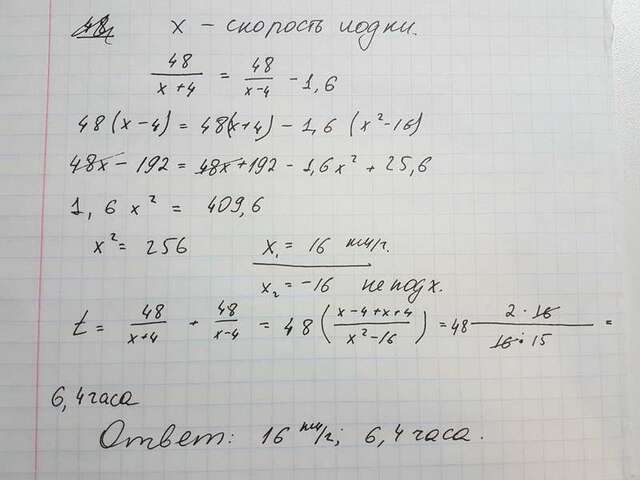 x – скорость лодки.
48/(x+4) = 48/(x-4) - 1,6
48(x-4) = 48(x+4) - 1,6 (x²-16)
48x - 192 = 48x + 192 - 1,6x² + 25,6
1,6 x² = 409,6
x² = 256 x₁ = 16 км/г.
x₂ = -16 не подх.
t = 48/(x+4) + 48/(x-4) = 48 ((x-4+x+4)/(x²-16)) = 48 (2·16)/(16·15) =
6,4 часа
Ответ: 16 км/г; 6,4 часа.